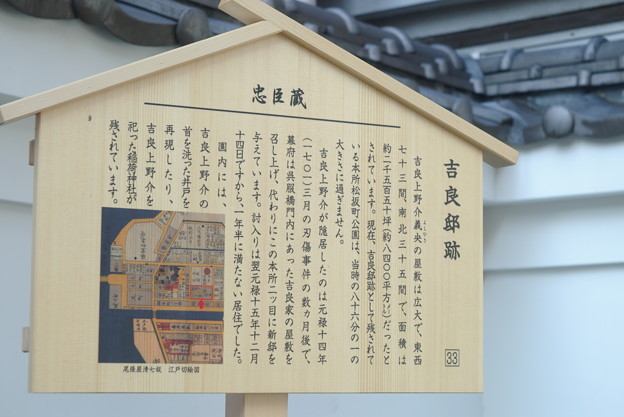 忠臣蔵
吉良邸跡
33
吉良上野介義央の屋敷は広大で、東西
よしひさ
七十三間、南北三十五間で、面積は
約二千五百五十坪(約八四〇〇平方㍍)だったと
されています。現在、吉良邸跡として残されて
いる本所松坂町公園は、当時の八十六分の一の
大きさに過ぎません。
吉良上野介が隠居したのは元禄十四年
(一七〇一)三月の刃傷事件の数カ月後で、
幕府は呉服橋門内にあった吉良家の屋敷を
召し上げ、代わりにこの本所二ッ目に新邸を
与えています。討入りは翌元禄十五年十二月
十四日ですから、一年半に満たない居住でした。
園内には、
吉良上野介の
首を洗った井戸を
再現したり、
吉良上野介を
祀った稲荷神社が
残されています。
尾張屋清七板 江戸切絵図